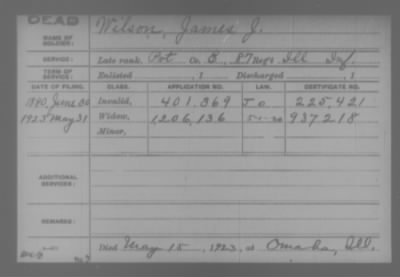 DEAD
NAME OF SOLDIER: Wilson, James J.
SERVICE: Late rank, Pvt Co. B, 87 Reg't Ill Inf.
TERM OF SERVICE: Enlisted , 1 Discharged , 1
DATE OF FILING. CLASS. APPLICATION NO. LAW. CERTIFICATE NO.
1890, June 30 Invalid, 401,369 225,421
1923 May 31 Widow, 1,206,136 937218
Minor,
ADDITIONAL SERVICES:
REMARKS:
Died May 15, 1923, at Omaha, Ill.